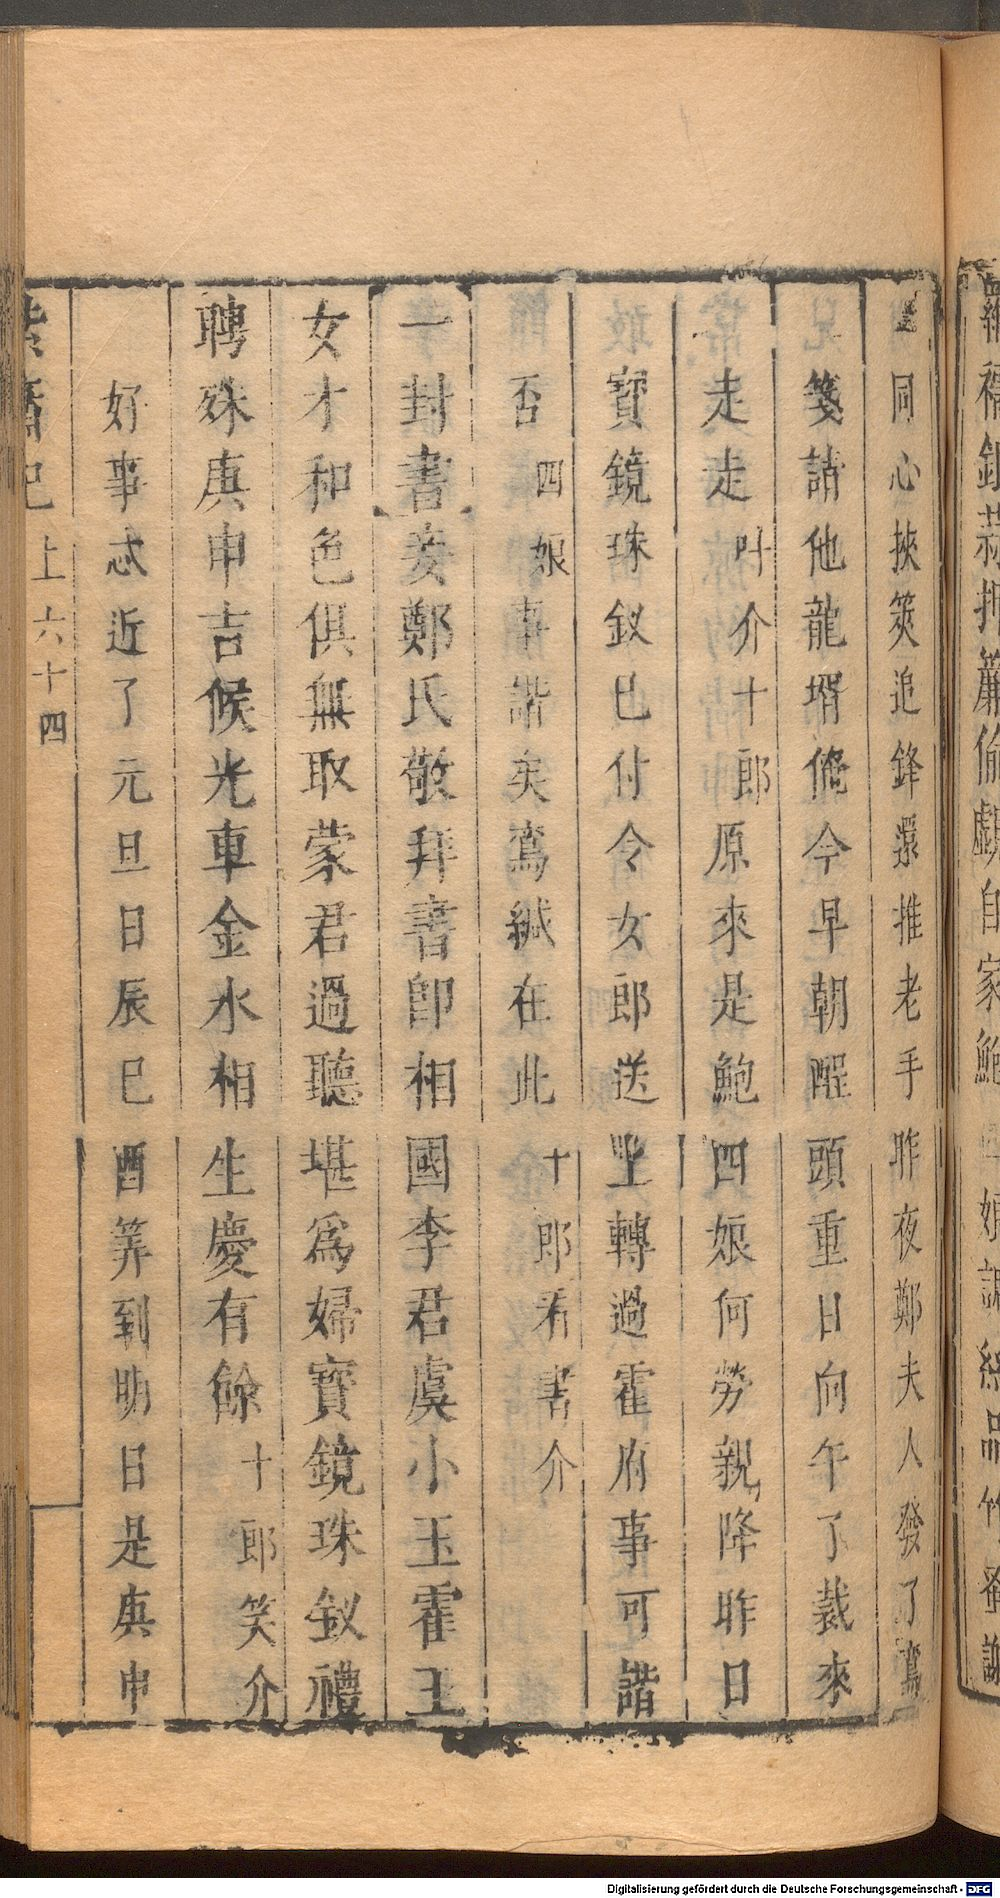 同心挾筴追鋒還推老手昨夜鄭夫人發了鸞
箋請他龍壻儋今早朝酲頭重日向午了裁來
走走叶介十郎原來是鮑四娘何勞親降昨日
寶鏡珠釵已付令女郎送上轉過霍府事可諧
否四娘事諧矣鸞緘在此十郎看書介
一封書妾鄭氏敬拜書卽相國李君虞小玉霍王
女才和色俱無取蒙君過聽堪爲婦寶鏡珠釵禮
聘殊庚申吉候光車金水相生慶有餘十郎笑介
好事忒近了元旦日辰巳酉筭到明日是庚申
紫簫記
上六十四
Digitalisierung gefördert durch die Deutsche Forschungsgemeinschaft - DFG